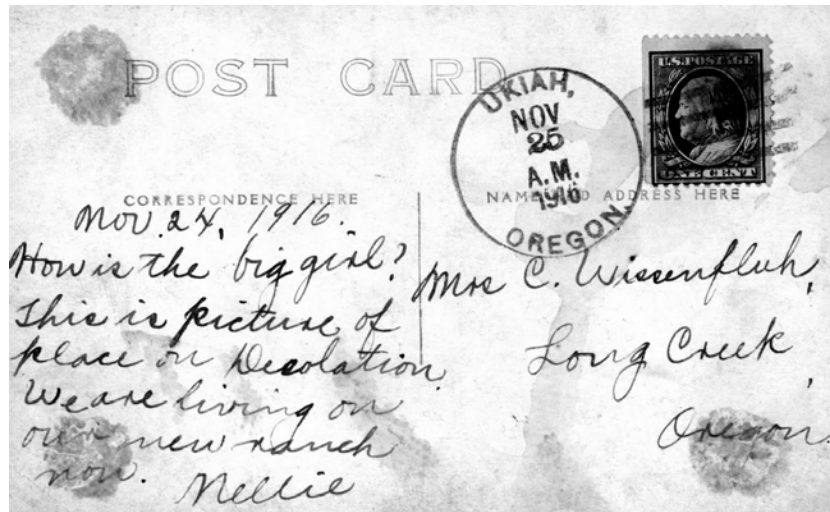 POST CARD
U.S.POSTAGE
ONE CENT
UKIAH,
NOV
25
A.M.
1916
OREGON.
CORRESPONDENCE HERE
NAME AND ADDRESS HERE
Nov. 24, 1916.
How is the big girl?
This is picture of
place on Desolation.
We are living on
our new ranch
now. Nellie
Mrs C. Wissenfluh,
Long Creek,
Oregon.